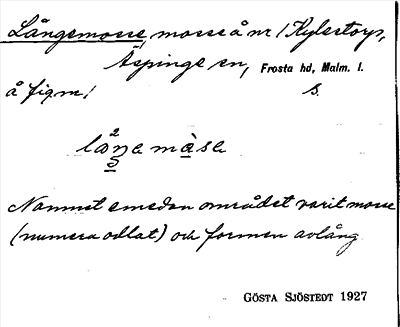 Långemosse, mosse å nr 1 Kylestorp,
Äspinge sn, Frosta hd, Malm. l.
å fig m/ S.
2
låŋe måse
Namnet emedan området varit mosse
(numera odlat) och formen avlång
GÖSTA SJÖSTEDT 1927